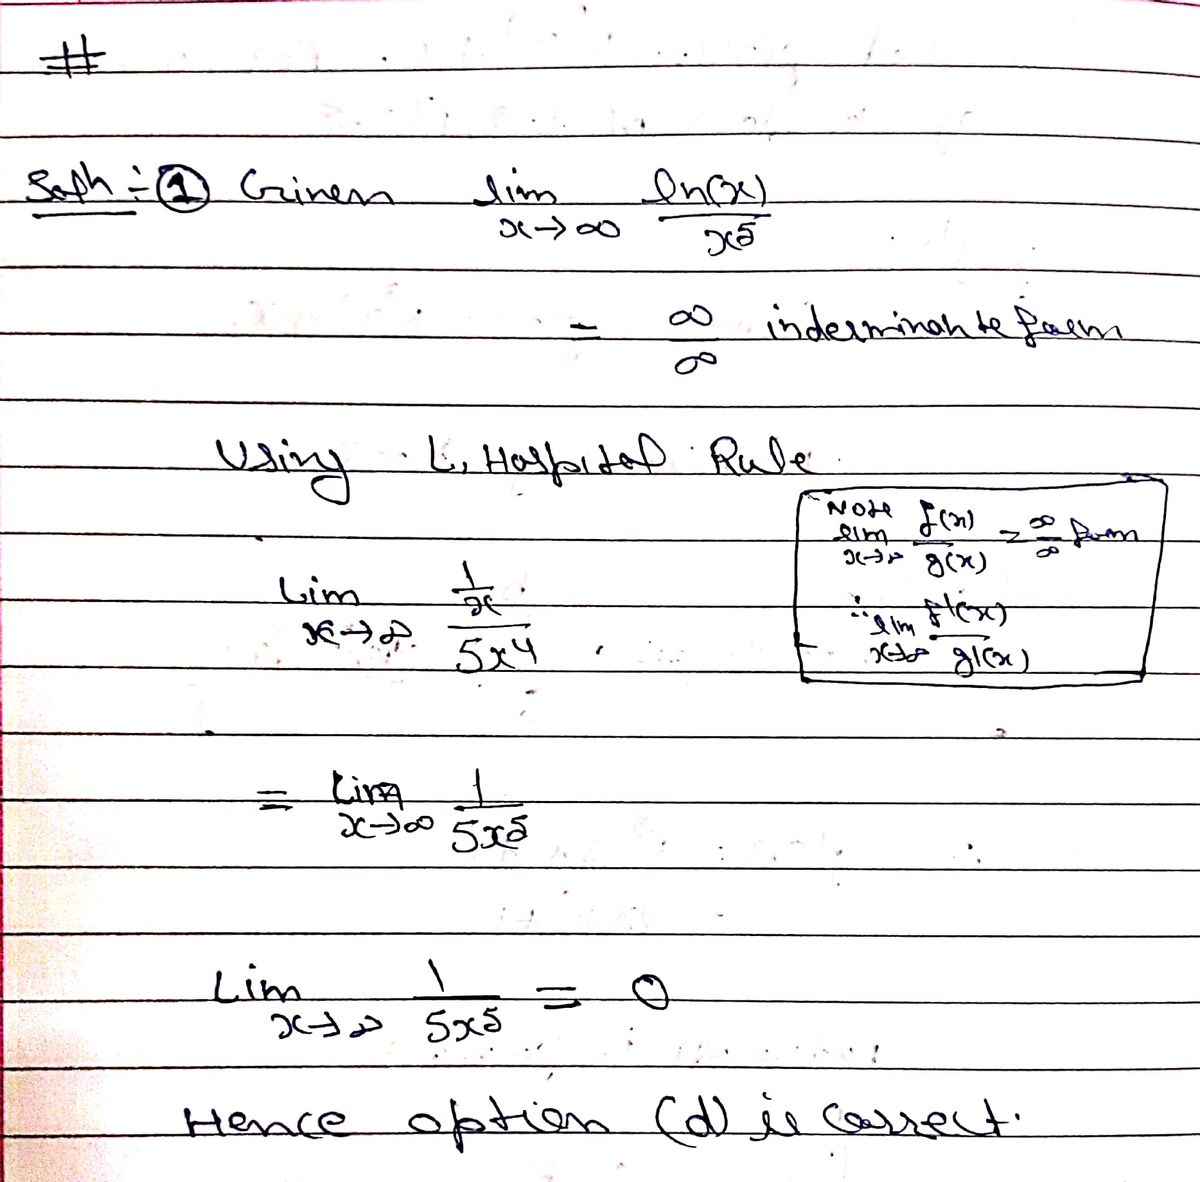 #
Soln :- ① Given lim x→∞ ln(x)/x^5
= ∞/∞ inderminante form
Using L, Hospital Rule
Note lim x→∞ f(x)/g(x) = ∞/∞ form
∴ lim x→∞ f'(x)/g'(x)
Lim x→∞ (1/x)/(5x^4)
= Lim x→∞ 1/(5x^5)
Lim x→∞ 1/(5x^5) = 0
Hence option (d) is correct.